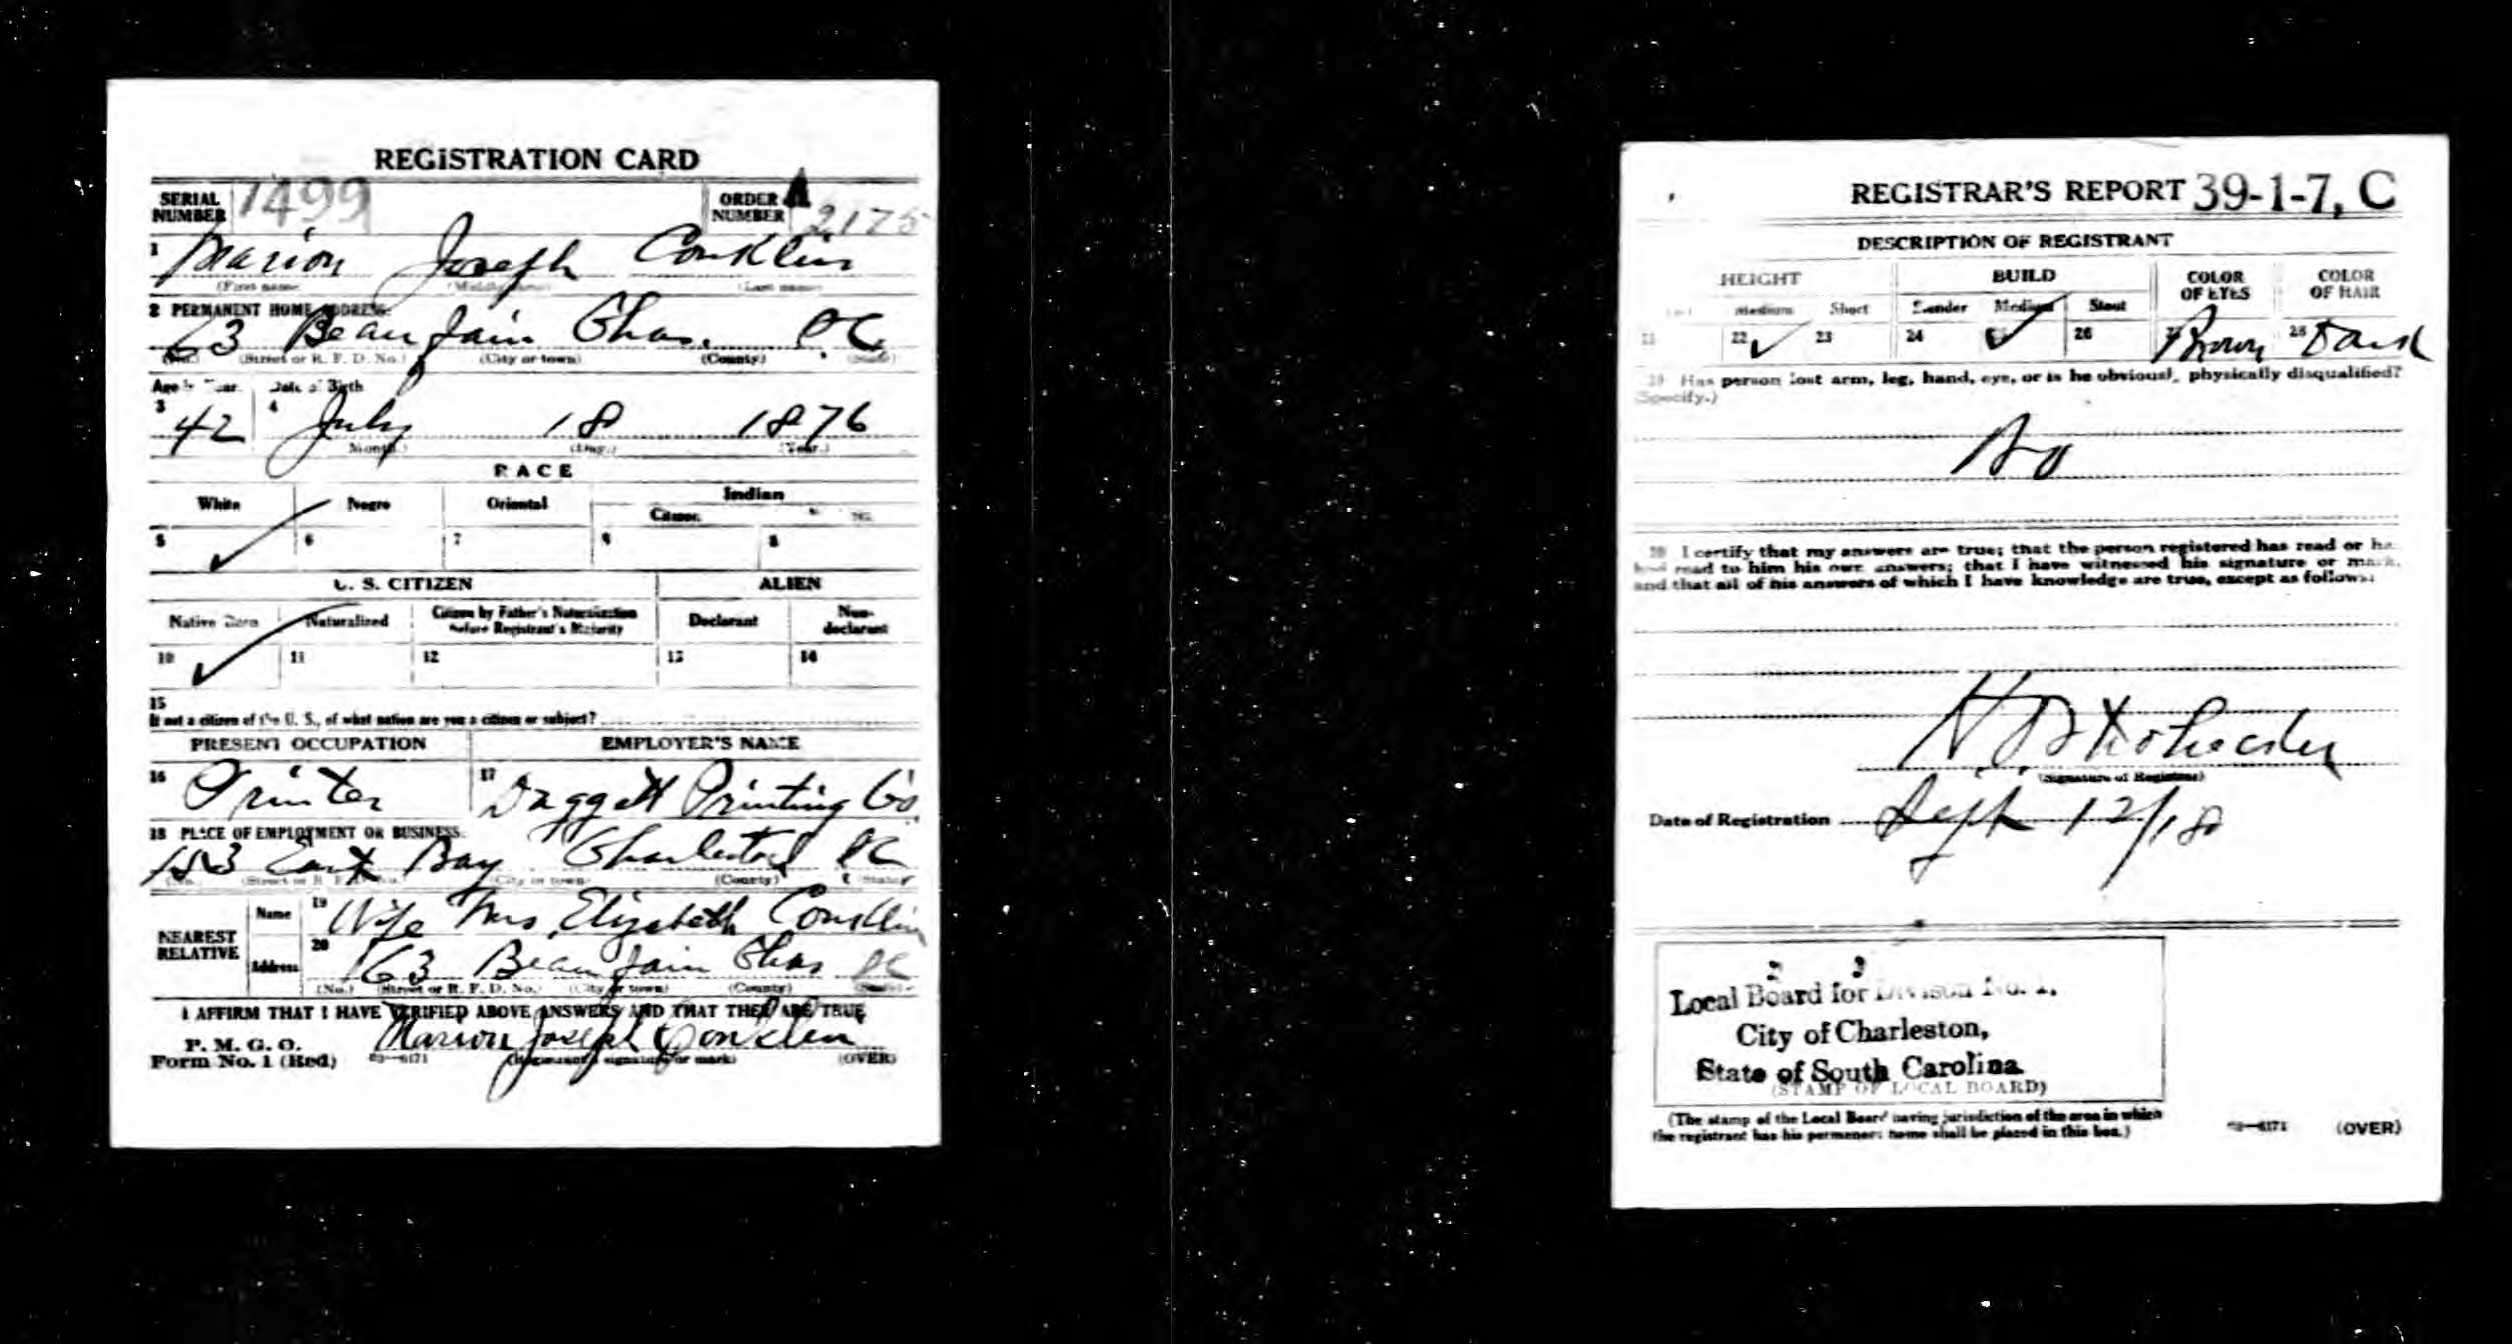 REGISTRATION CARD
SERIAL NUMBER 1499 ORDER NUMBER A 2175
1 Marion Joseph Conklin
(First name) (Middle name) (Last name)
2 PERMANENT HOME ADDRESS:
63 Beaufain Chas. SC
(No.) (Street or R. F. D. No.) (City or town) (County) (State)
Age in Years Date of Birth
3 42 4 July 18 1876
(Month.) (Day.) (Year.)
RACE
White Negro Oriental Indian
Citizen
5 6 7 9 8
U. S. CITIZEN ALIEN
Native Born Naturalized Citizen by Father's Naturalization before Registrant's Majority Declarant Non-declarant
10 11 12 13 14
15
If not a citizen of the U. S., of what nation are you a citizen or subject?
PRESENT OCCUPATION EMPLOYER'S NAME
16 Printer 17 Daggett Printing Co.
18 PLACE OF EMPLOYMENT OR BUSINESS:
153 East Bay Charleston SC
(No.) (Street or R. F. D. No.) (City or town) (County) (State)
NEAREST RELATIVE
Name 19 Wife Mrs Elizabeth Conklin
Address 20 63 Beaufain Chas SC
(No.) (Street or R. F. D. No.) (City or town) (County) (State)
I AFFIRM THAT I HAVE VERIFIED ABOVE ANSWERS AND THAT THEY ARE TRUE
P. M. G. O.
Form No. 1 (Red) 03—6171 Marion Joseph Conklin
(Registrant's signature or mark) (OVER)
REGISTRAR'S REPORT 39-1-7, C
DESCRIPTION OF REGISTRANT
HEIGHT BUILD COLOR OF EYES COLOR OF HAIR
Medium Short Slender Medium Stout
21 22 23 24 25 26 27 Brown 28 Dark
29 Has person lost arm, leg, hand, eye, or is he obviously physically disqualified?
(Specify.)
No
30 I certify that my answers are true; that the person registered has read or has
had read to him his own answers; that I have witnessed his signature or mark,
and that all of his answers of which I have knowledge are true, except as follows:
(Signature of Registrar)
Date of Registration Sept 12/18
Local Board for Divison No. 1,
City of Charleston,
State of South Carolina.
(STAMP OF LOCAL BOARD)
(The stamp of the Local Board having jurisdiction of the area in which
the registrant has his permanent home shall be placed in this box.)
03—6171 (OVER)